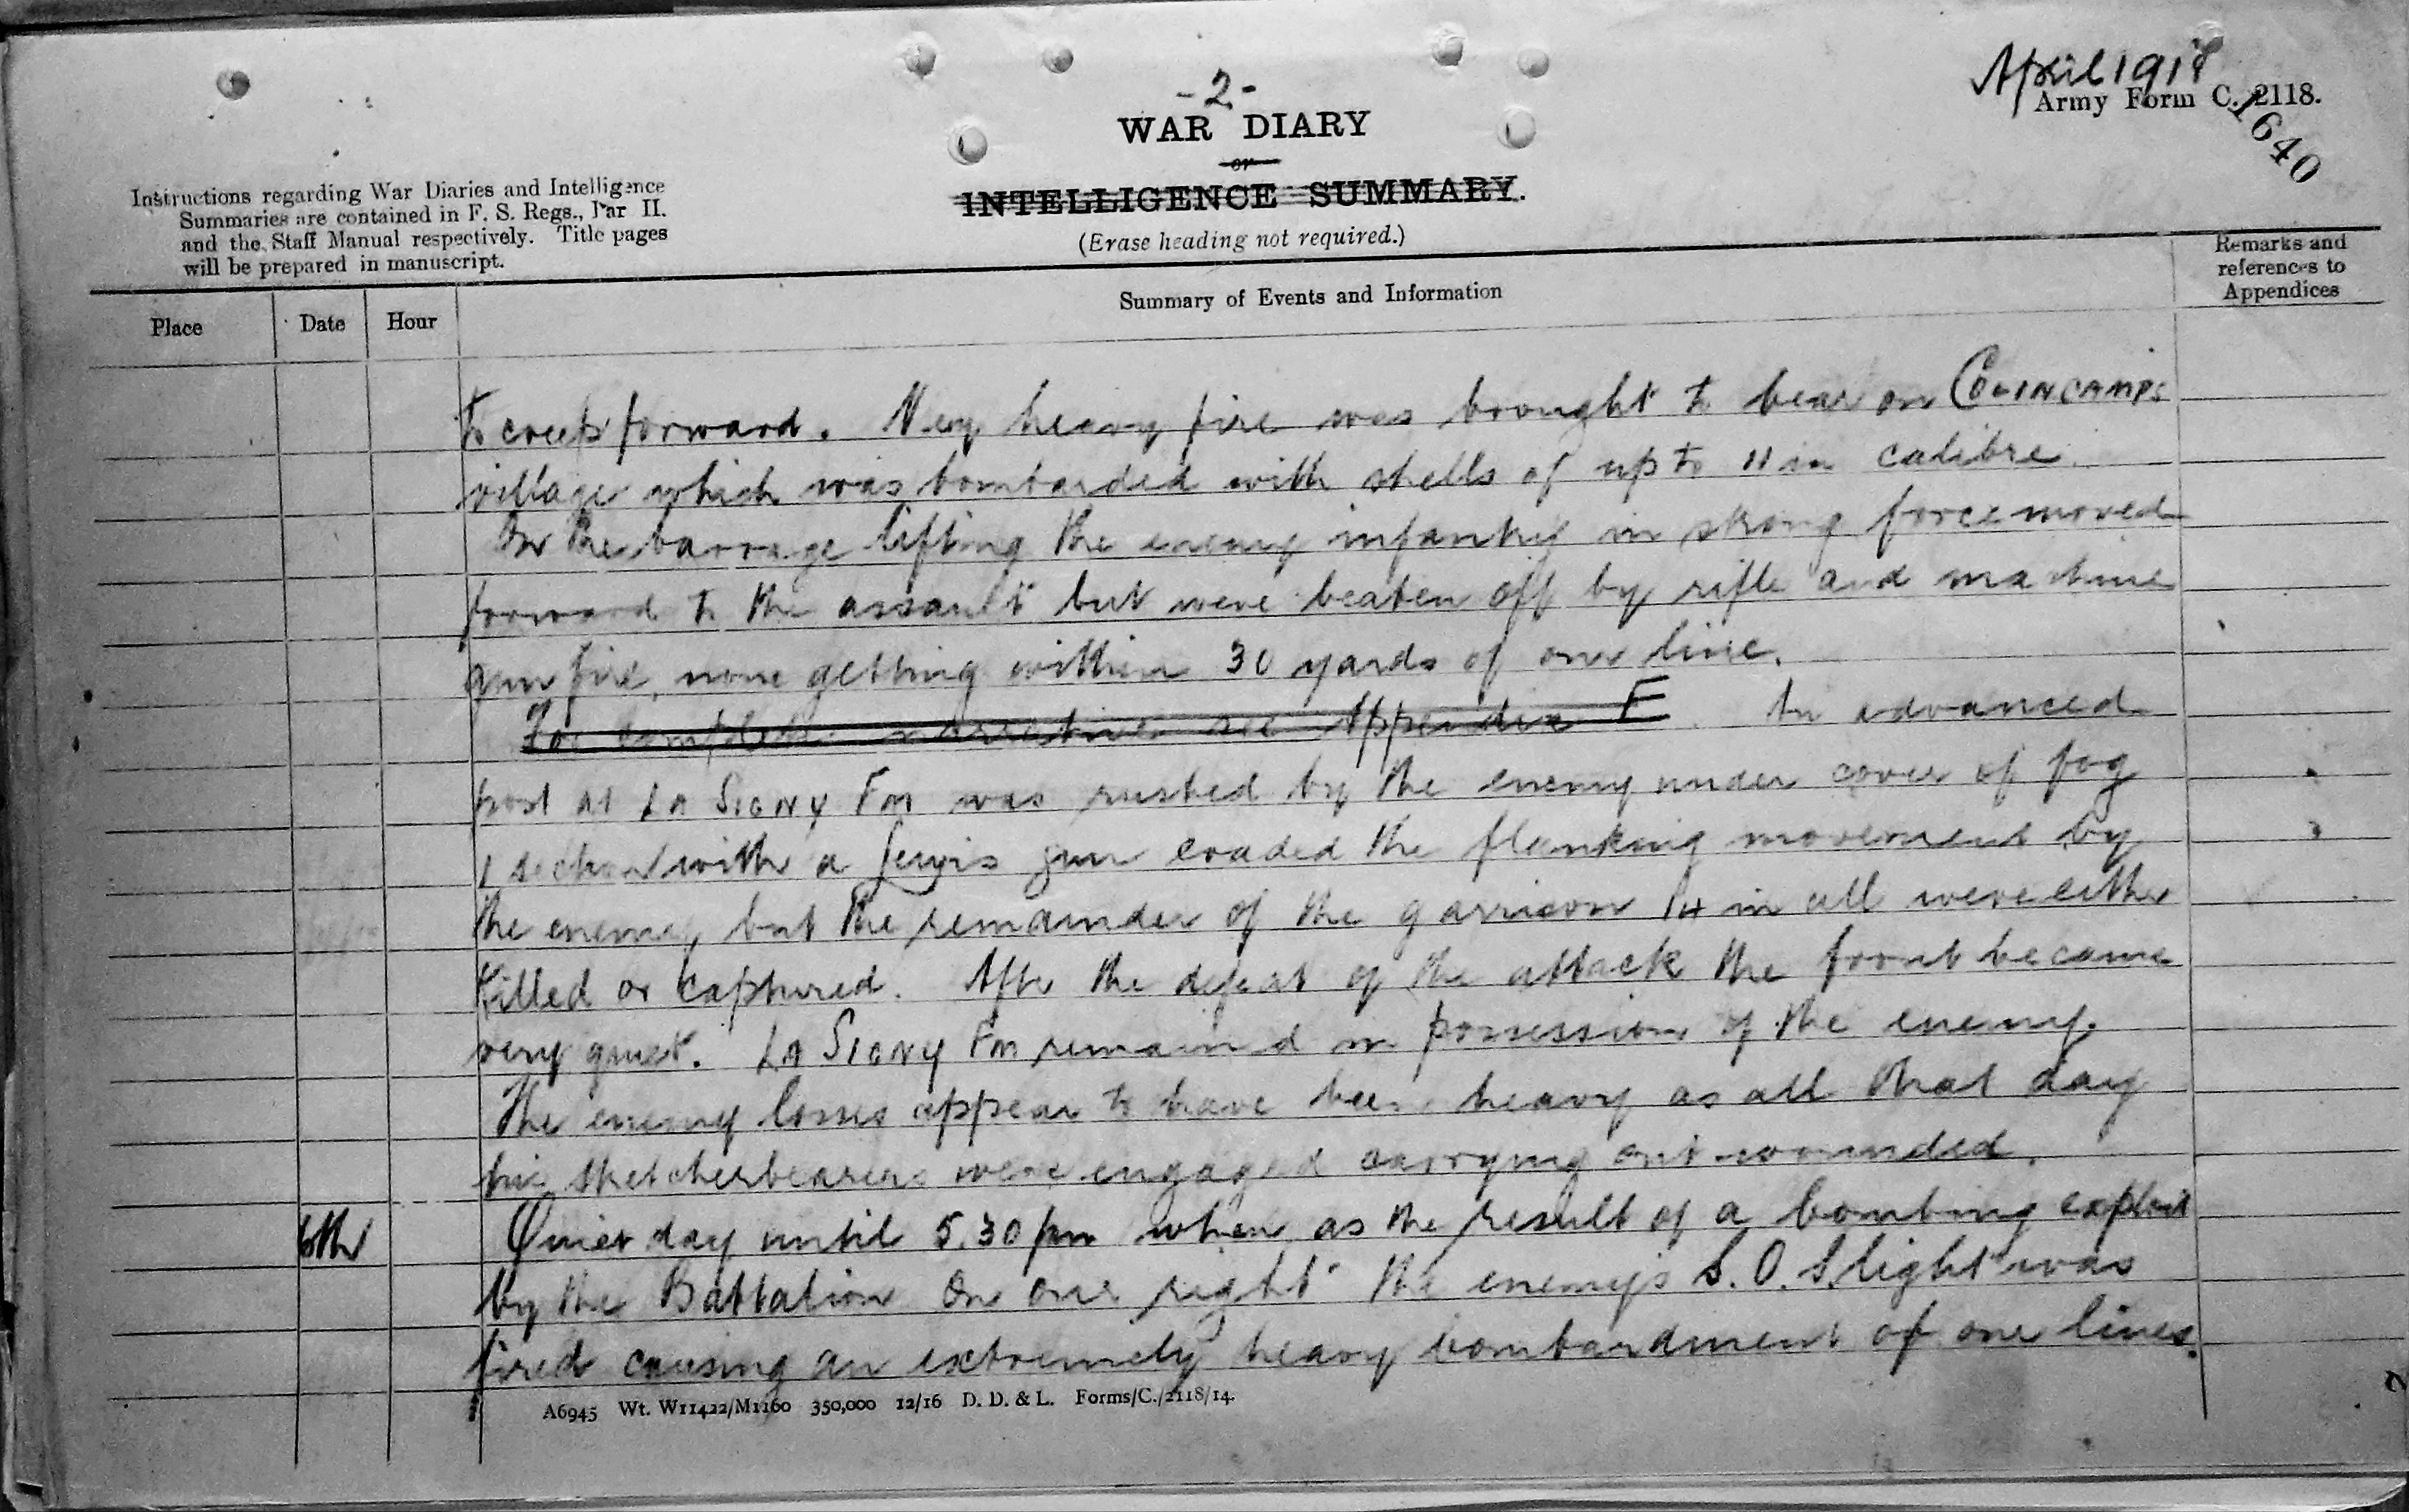 - 2 -
April 1918
WAR DIARY
Army Form C. 2118.
or
1640
INTELLIGENCE SUMMARY.
(Erase heading not required.)
Instructions regarding War Diaries and Intelligence
Summaries are contained in F. S. Regs., Par II.
and the Staff Manual respectively. Title pages
will be prepared in manuscript.
Place
Date
Hour
Summary of Events and Information
Remarks and
references to
Appendices
to creep forward. Very heavy fire was brought to bear on COLINCAMPS
village which was bombarded with shells of up to 11 in calibre.
On the barrage lifting the enemy infantry in strong force moved
forward to the assault but were beaten off by rifle and machine
gun fire, none getting within 30 yards of our line.
For complete narrative see Appendix E. An advanced
post at LA SIGNY Fm was rushed by the enemy under cover of fog
1 section with a Lewis gun evaded the flanking movement by
the enemy but the remainder of the garrison 14 in all were either
killed or captured. After the defeat of the attack the front became
very quiet. LA SIGNY Fm remained in possession of the enemy.
The enemy losses appear to have been heavy as all that day
his stretcherbearers were engaged carrying out wounded.
6th
Quiet day until 5.30 pm when as the result of a bombing exploit
by the Battalion on our right the enemy's S.O.S. light was
fired causing an extremely heavy bombardment of our lines.
A6945 Wt. W11422/M1160 350,000 12/16 D. D. & L. Forms/C./2118/14.